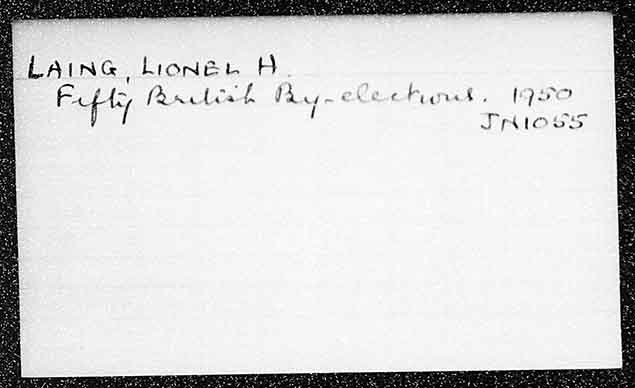 LAING, LIONEL H.
Fifty British By-elections. 1950
JN1055